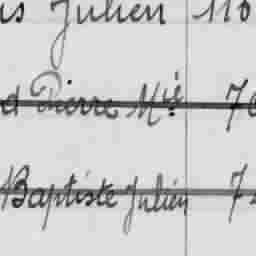 Julien 116
Pierre Mie 7
Baptiste Julien 7